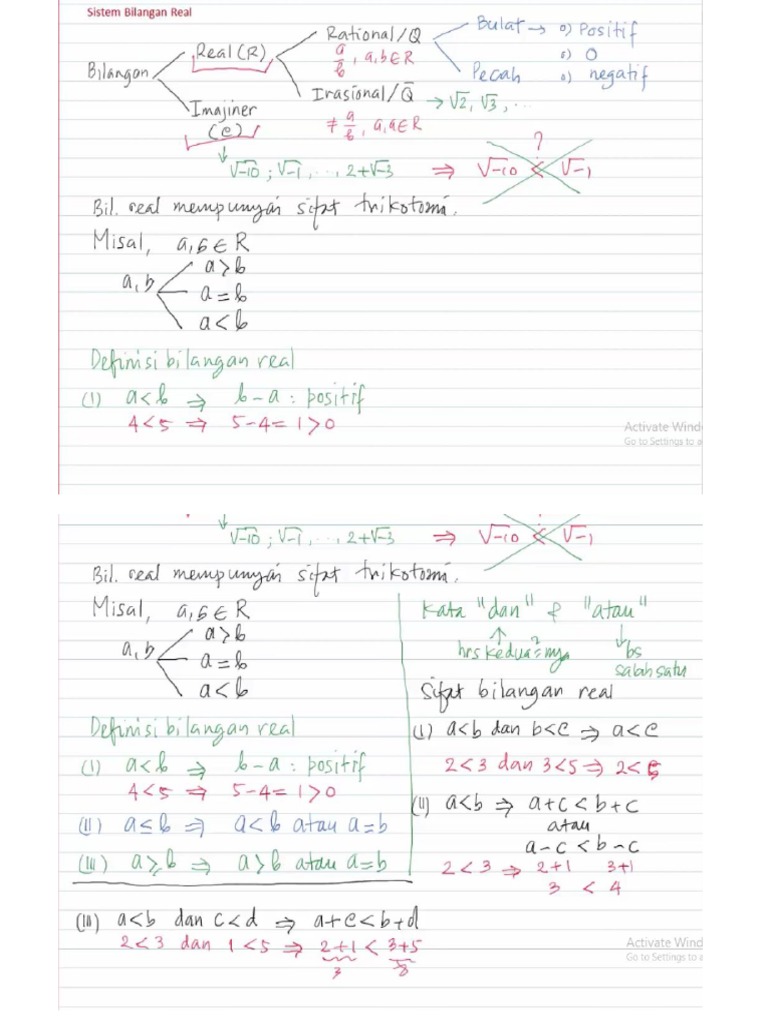 Sistem Bilangan Real
Bilangan
Real (R)
Imajiner
(C)
Rational/Q
a/b, a,b ∈ R
Irasional/Q̄ → √2, √3, ..
≠ a/b, a,a ∈ R
Bulat → o) Positif
o) 0
Pecah o) negatif
↓ √-10 ; √-1, ..., 2+√-3 ⇒ √-10 < √-1
?
Bil. real mempunyai sifat trikotomi.
Misal, a,b ∈ R
a,b
a>b
a=b
a<b
Definisi bilangan real
(I) a<b ⇒ b-a : positif
4<5 ⇒ 5-4=1>0
Activate Wind
Go to Settings to a
↓ √-10 ; √-1, ..., 2+√-3 ⇒ √-10 < √-1
Bil. real mempunyai sifat trikotomi.
Misal, a,b ∈ R
a,b
a>b
a=b
a<b
Definisi bilangan real
(I) a<b ⇒ b-a : positif
4<5 ⇒ 5-4=1>0
(II) a≤b ⇒ a<b atau a=b
(III) a≥b ⇒ a>b atau a=b
Kata "dan" & "atau"
↑ ↓
hrs kedua²nya bs
salah satu
Sifat bilangan real
(I) a<b dan b<c ⇒ a<c
2<3 dan 3<5 ⇒ 2<5
(II) a<b ⇒ a+c<b+c
atau
a-c<b-c
2<3 ⇒ 2+1 3+1
3 < 4
(III) a<b dan c<d ⇒ a+c<b+d
2<3 dan 1<5 ⇒ 2+1 < 3+5
3 8
Activate Wind
Go to Settings to a